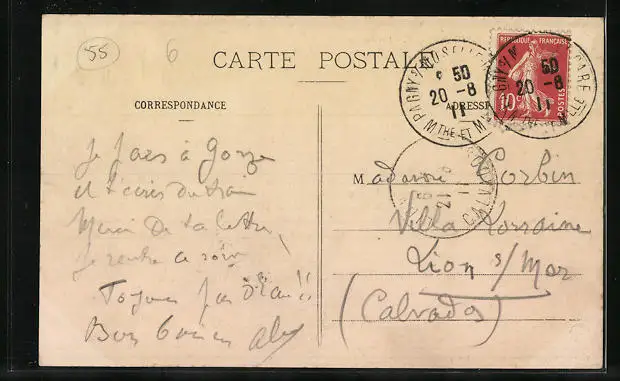 55
6
CARTE POSTALE
CORRESPONDANCE
ADRESSE
PAGNY S/ MOSELLE
50
20 -8
11
MTHE ET M
RÉPUBLIQUE FRANÇAISE
10c
POSTES
50
20 -8
11
21
11
CALVADOS
Je pars à Gorze
et t'écris du
Merci de ta lettre,
je rentre ce soir
Toujours pas d'eau!!
Bons baisers
Madame Corbin
Villa Lorraine
Lion s/ Mer
(Calvados)